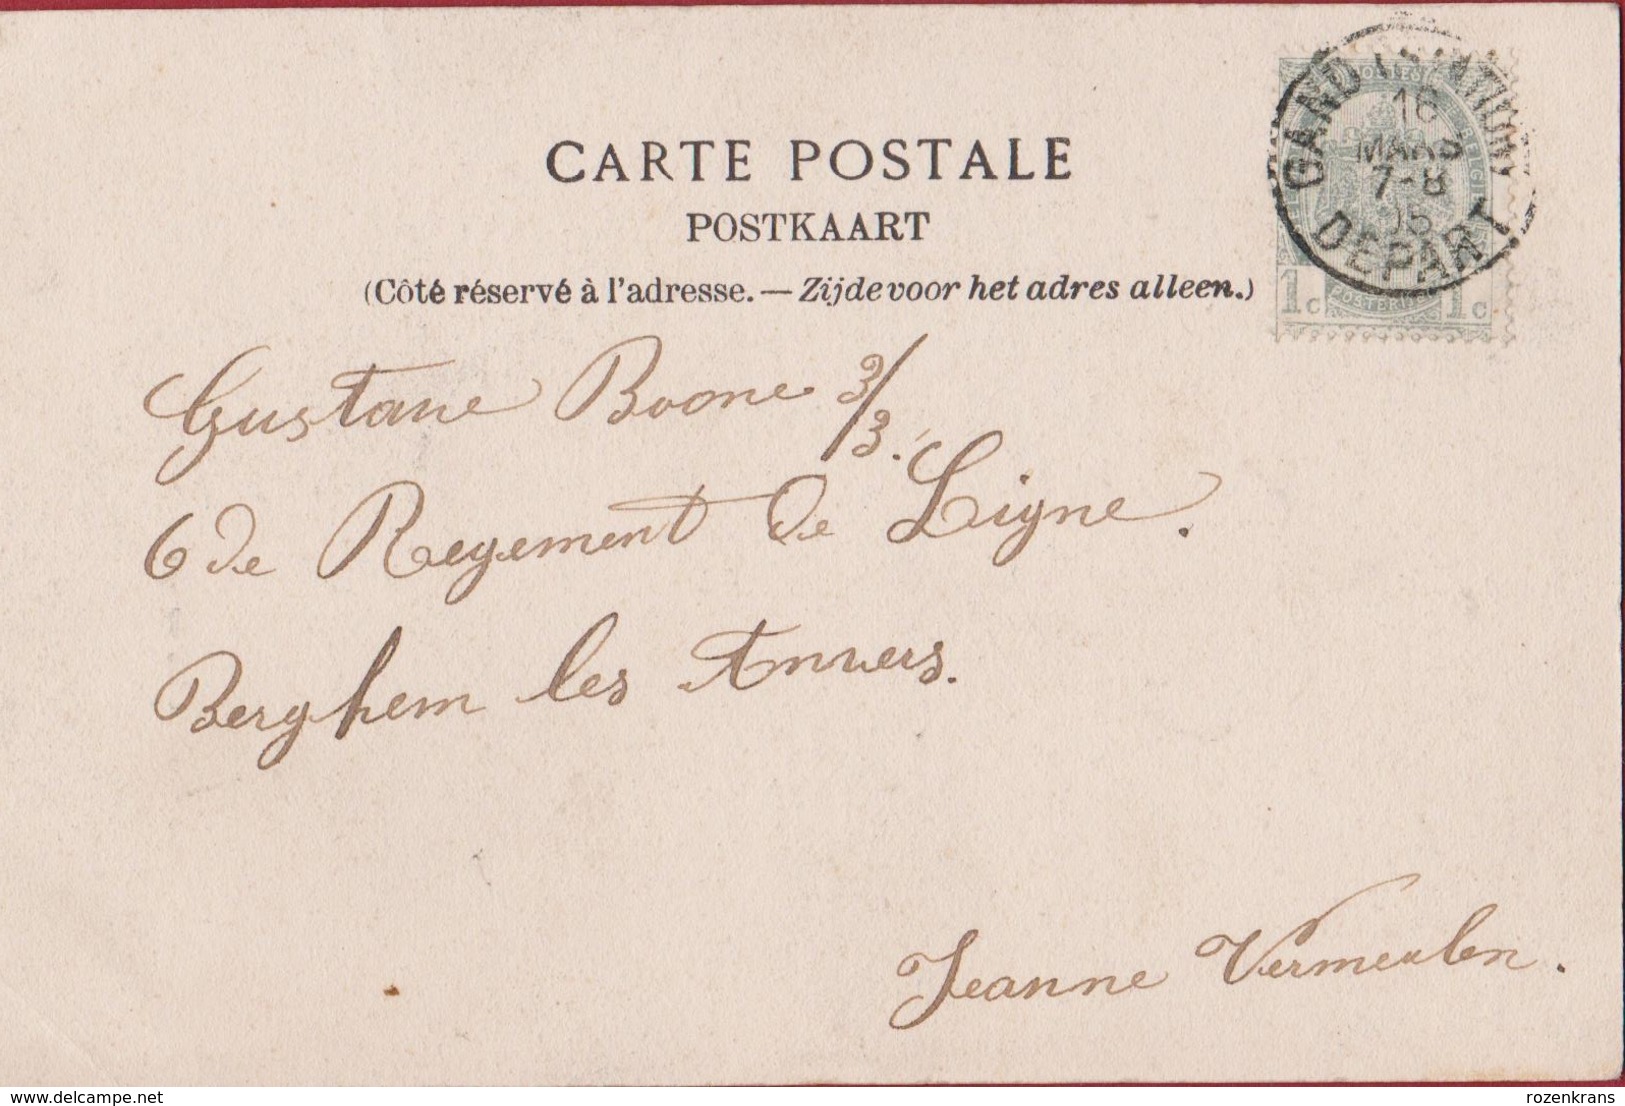 CARTE POSTALE
POSTKAART
(Côté réservé à l'adresse. — Zijde voor het adres alleen.)
GAND
16
MARS
7-8
05
DEPART
1c POSTERIJ 1c
Gustave Boone 3/3.
6 de Regement de Ligne.
Berghem les Anvers.
Jeanne Vermeulen.
delcampe.net
rozenkrans